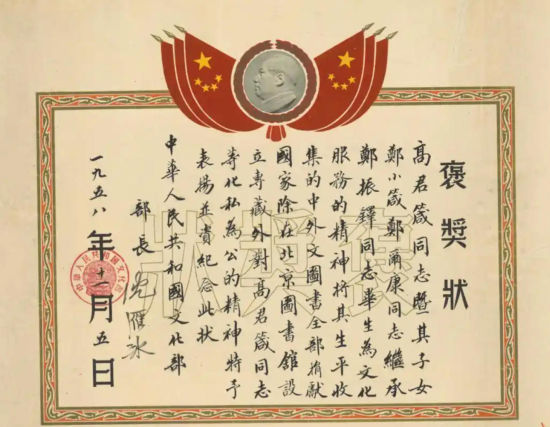 褒獎狀
高君箴同志暨其子女
鄭小箴鄭爾康同志繼承
鄭振鐸同志畢生為文化
服務的精神將其生平收
集的中外文圖書全部捐献
國家除在北京圖書館設
立專藏外對高君箴同志
等化私為公的精神特予
表揚並資紀念此狀
中華人民共和國文化部
部長 沈雁冰
一九五八年十一月五日
狀獎褒
中華人民共和國文化部